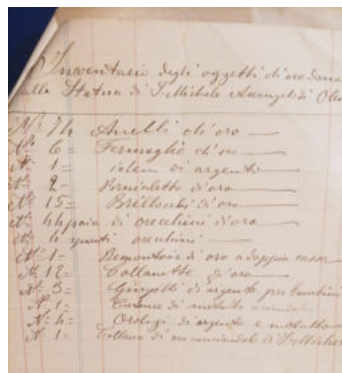 Inventario degli oggetti di oro
alla Statua di S. Michele Arcangelo di
N° 74 Anelli di oro
N° 6 = Fermaglio di oro
N° 1 = idem di argento
N° 2 - Braccialetto d'oro
N° 15 = Brillocchi di oro
N° 44 paia di orecchini d'oro
N° 4 spunti orecchini
N° 1 - Remontoir di oro a doppia cassa
N° 12 - Collanette d'oro
N° 3 = di argento per bambini
N° 1 - di metallo
N° 4 = Orologi di argento e metallo
N° 1 - Collana di